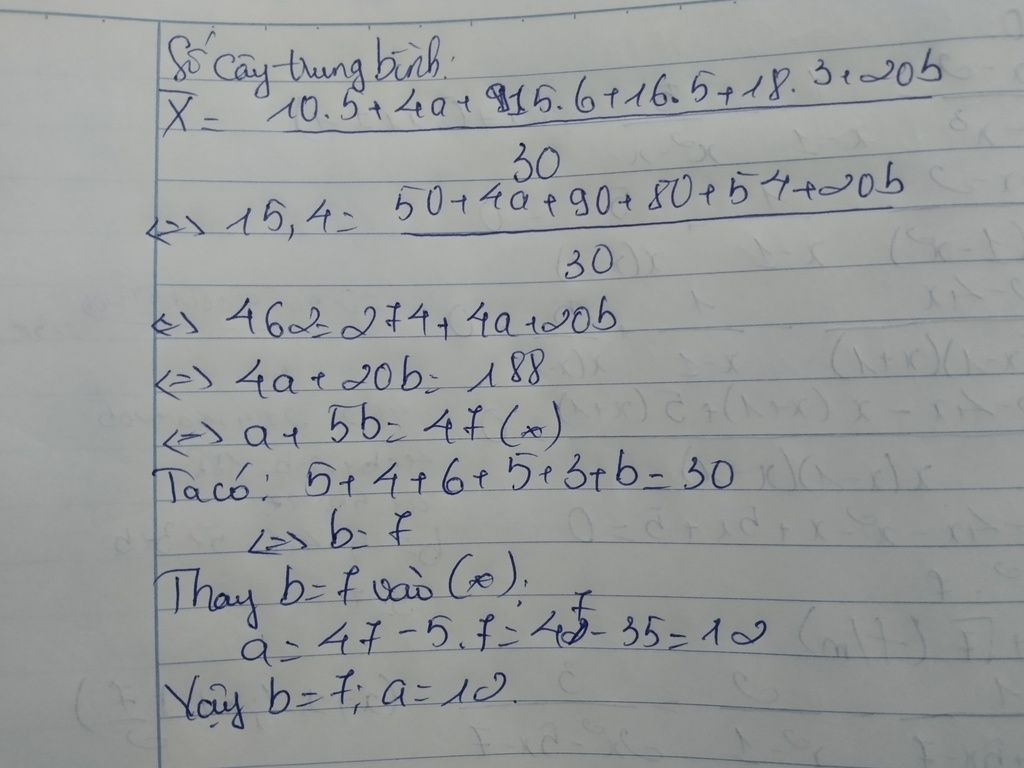 Số cây trung bình:
X̄ = 10.5+4a+15.6+16.5+18.3+20b
30
<=> 15,4 = 50+4a+90+80+54+20b
30
<=> 462=274+4a+20b
<=> 4a+20b=188
<=> a+5b=47 (*)
Ta có: 5+4+6+5+3+b=30
<=> b=7
Thay b=7 vào (*):
a=47-5.7=47-35=12
Vậy b=7; a=12.